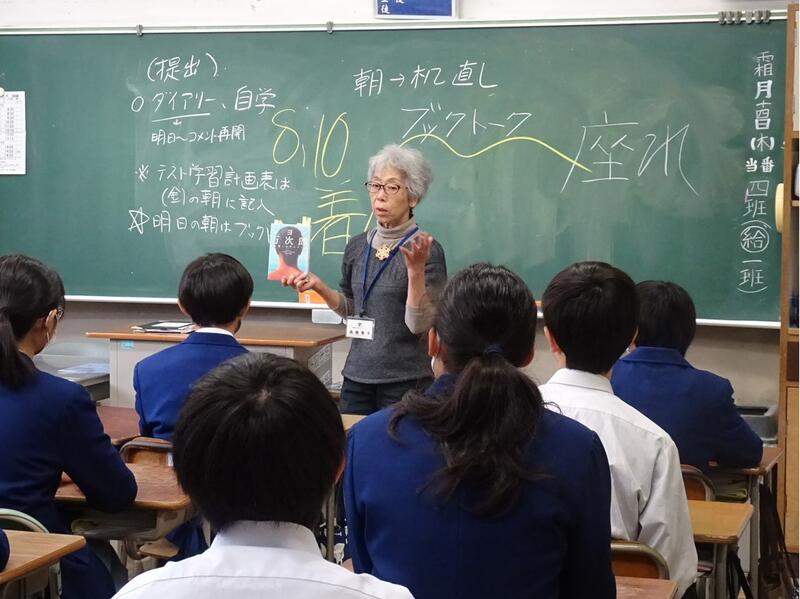 (提出)
○ ダイアリー、自学
明日〜コメント再開
※ テスト学習計画表は
(金)の朝に記入
☆明日の朝はブック
朝→机直し
8:10
着
ブックトーク
座れ
霜月十四日(木)
当番
四班
給
一班
万次郎